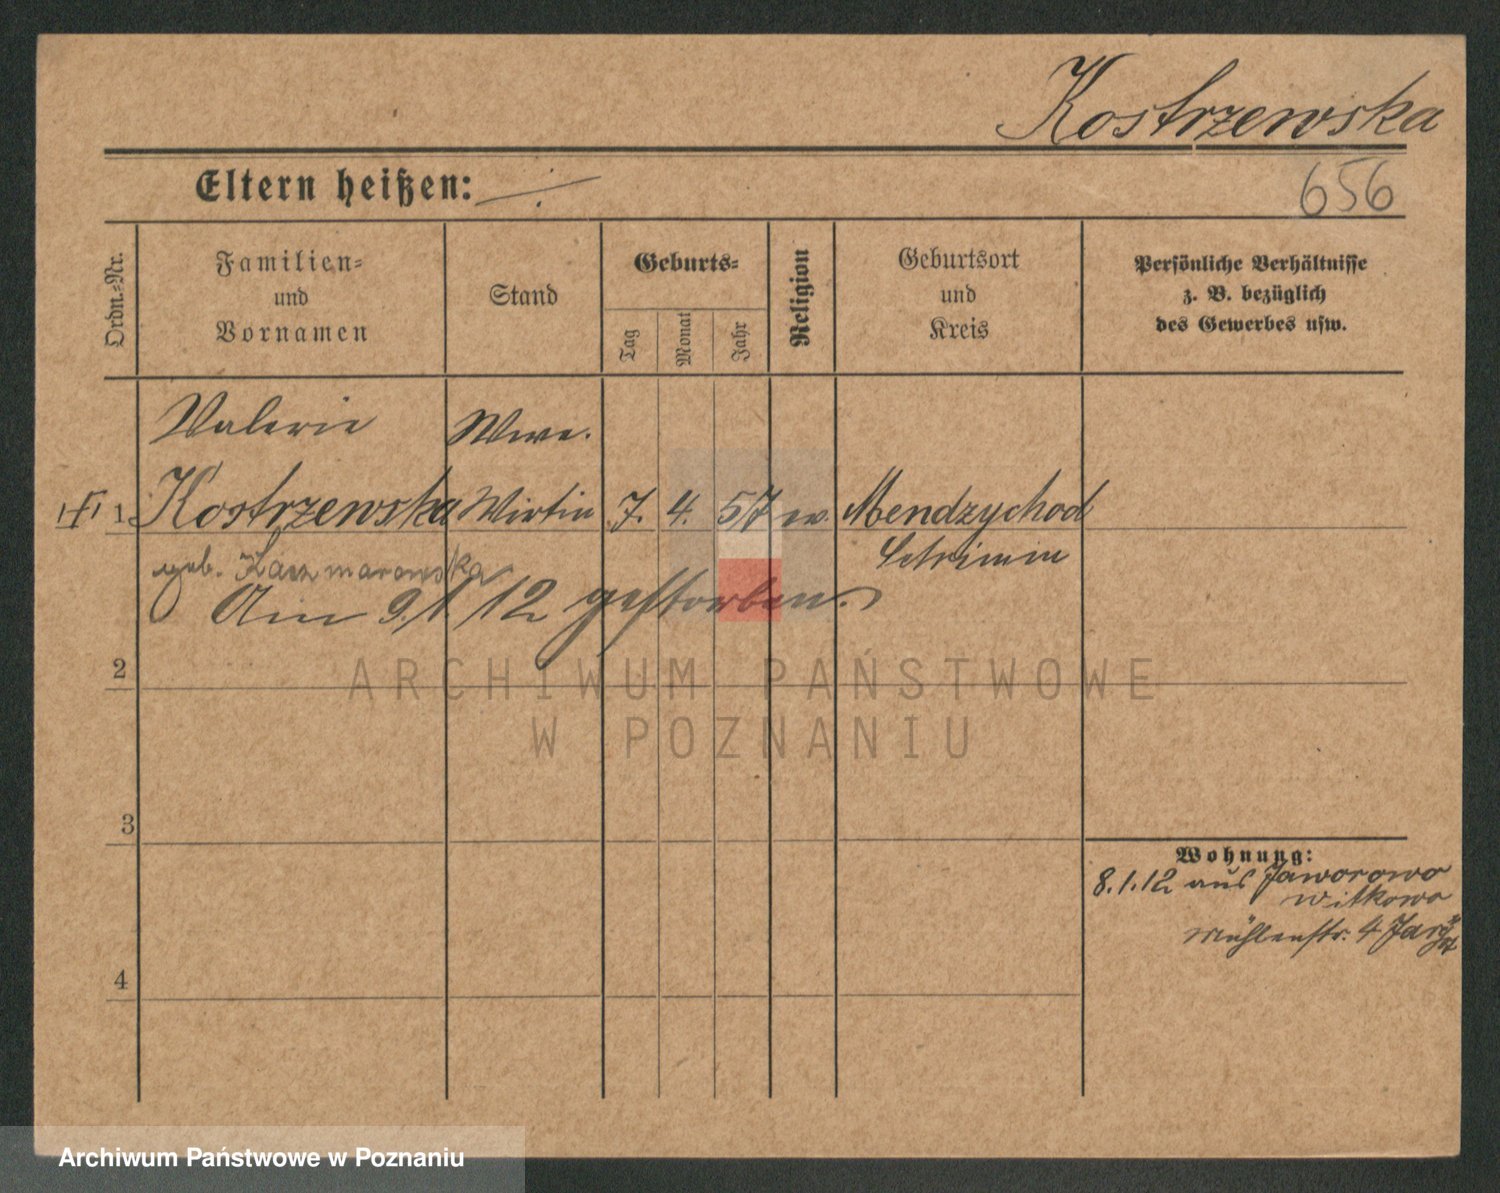 Kostrzewska
Eltern heißen:
656
Ordn.-Nr.
Familien-
und
Vornamen
Stand
Geburts-
Tag
Monat
Jahr
Religion
Geburtsort
und
Kreis
Persönliche Verhältnisse
z. B. bezüglich
des Gewerbes usw.
Valerie
Wwe.
1 Kostrzewska Wirtin 7. 4. 57 Mendzychod
geb. Kaczmarowska
Schrimm
Am 9./1 12 gestorben.
2
ARCHIWUM PAŃSTWOWE
W POZNANIU
3
Wohnung:
8.1.12 aus Jaworowo
Witkowo
Mühlenstr. 4
4
Archiwum Państwowe w Poznaniu